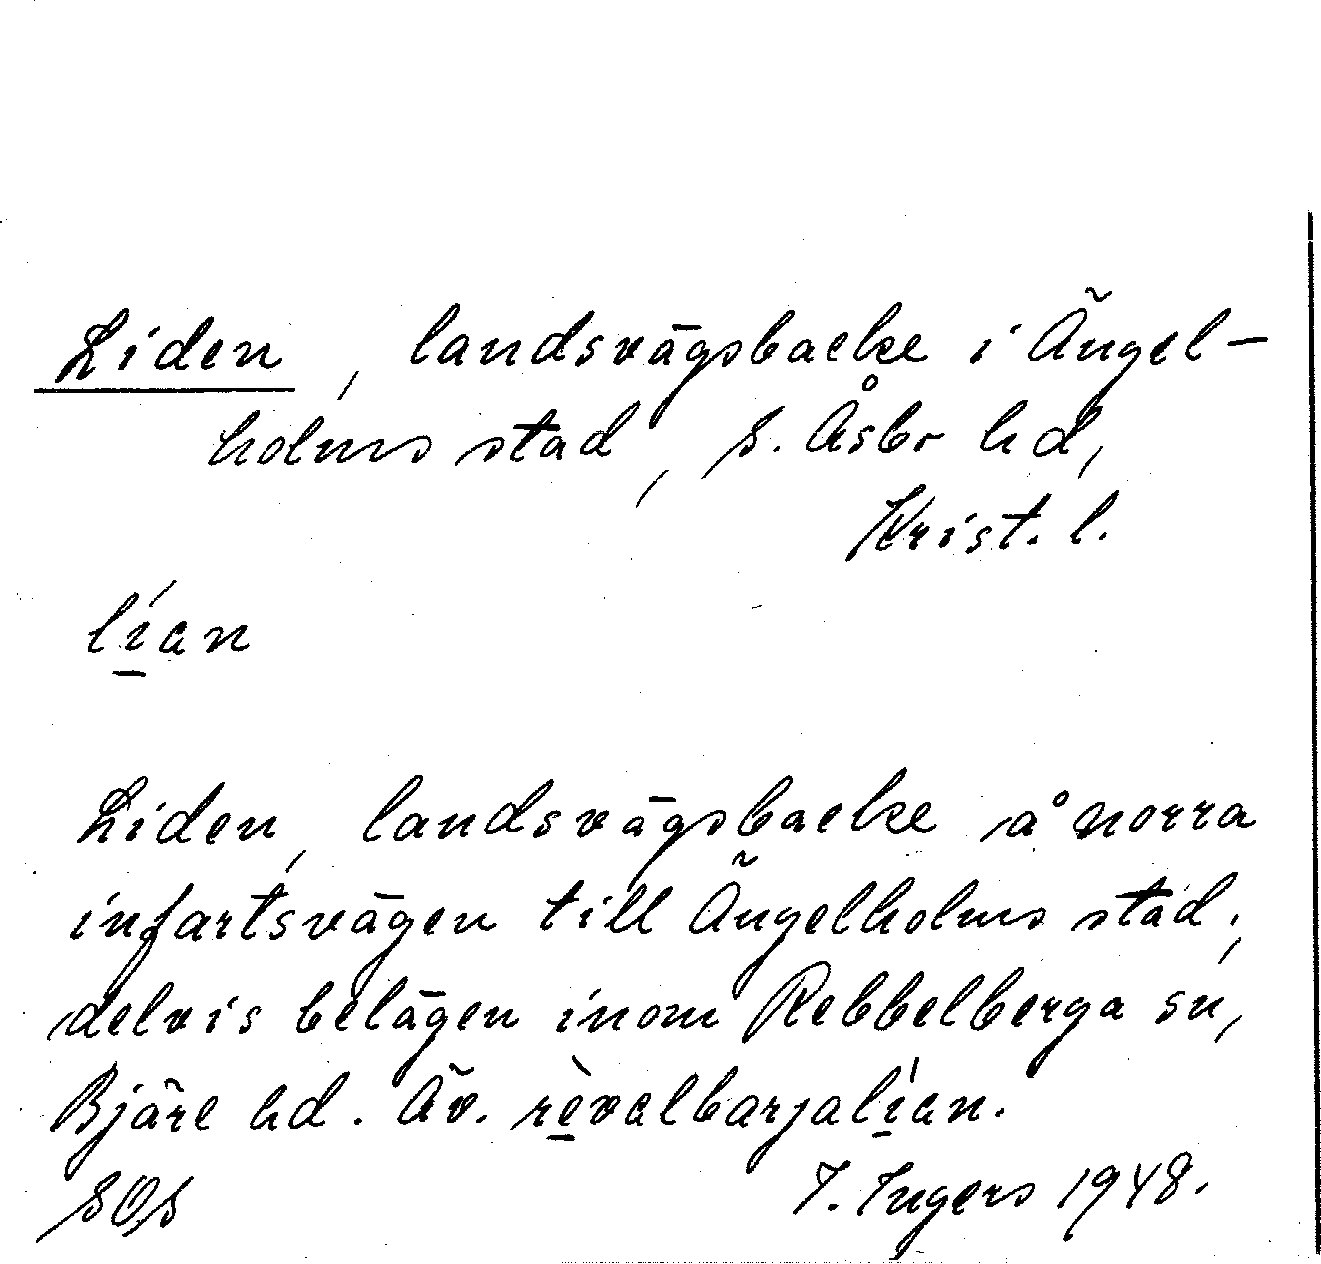 Liden, landsvägsbacke i Ängel-
holms stad, S. Åsbo hd,
Krist. l.
lían
Liden, landsvägsbacke å norra
infartsvägen till Ängelholms stad,
delvis belägen inom Rebbelberga sn,
Bjäre hd. Äv. rèvelbarjalían.
SOS I. Ingers 1948.